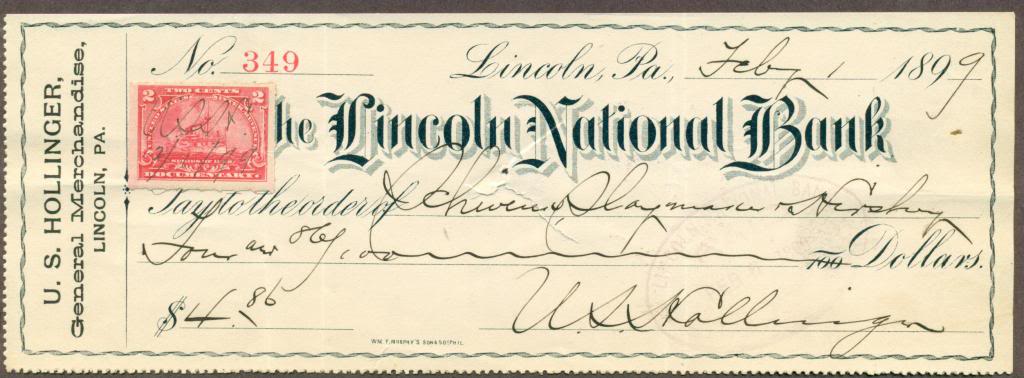 U. S. HOLLINGER,
General Merchandise,
LINCOLN, PA.
No. 349
Lincoln, Pa., Feby 1 1899
TWO CENTS
2 2
DOCUMENTARY.
The Lincoln National Bank
Pay to the order of Slaymaker & Hershey
Four and 86/100 Dollars.
$4.86
U.S. Hollinger
WM. F. MURPHY'S SONS CO. PHIL.